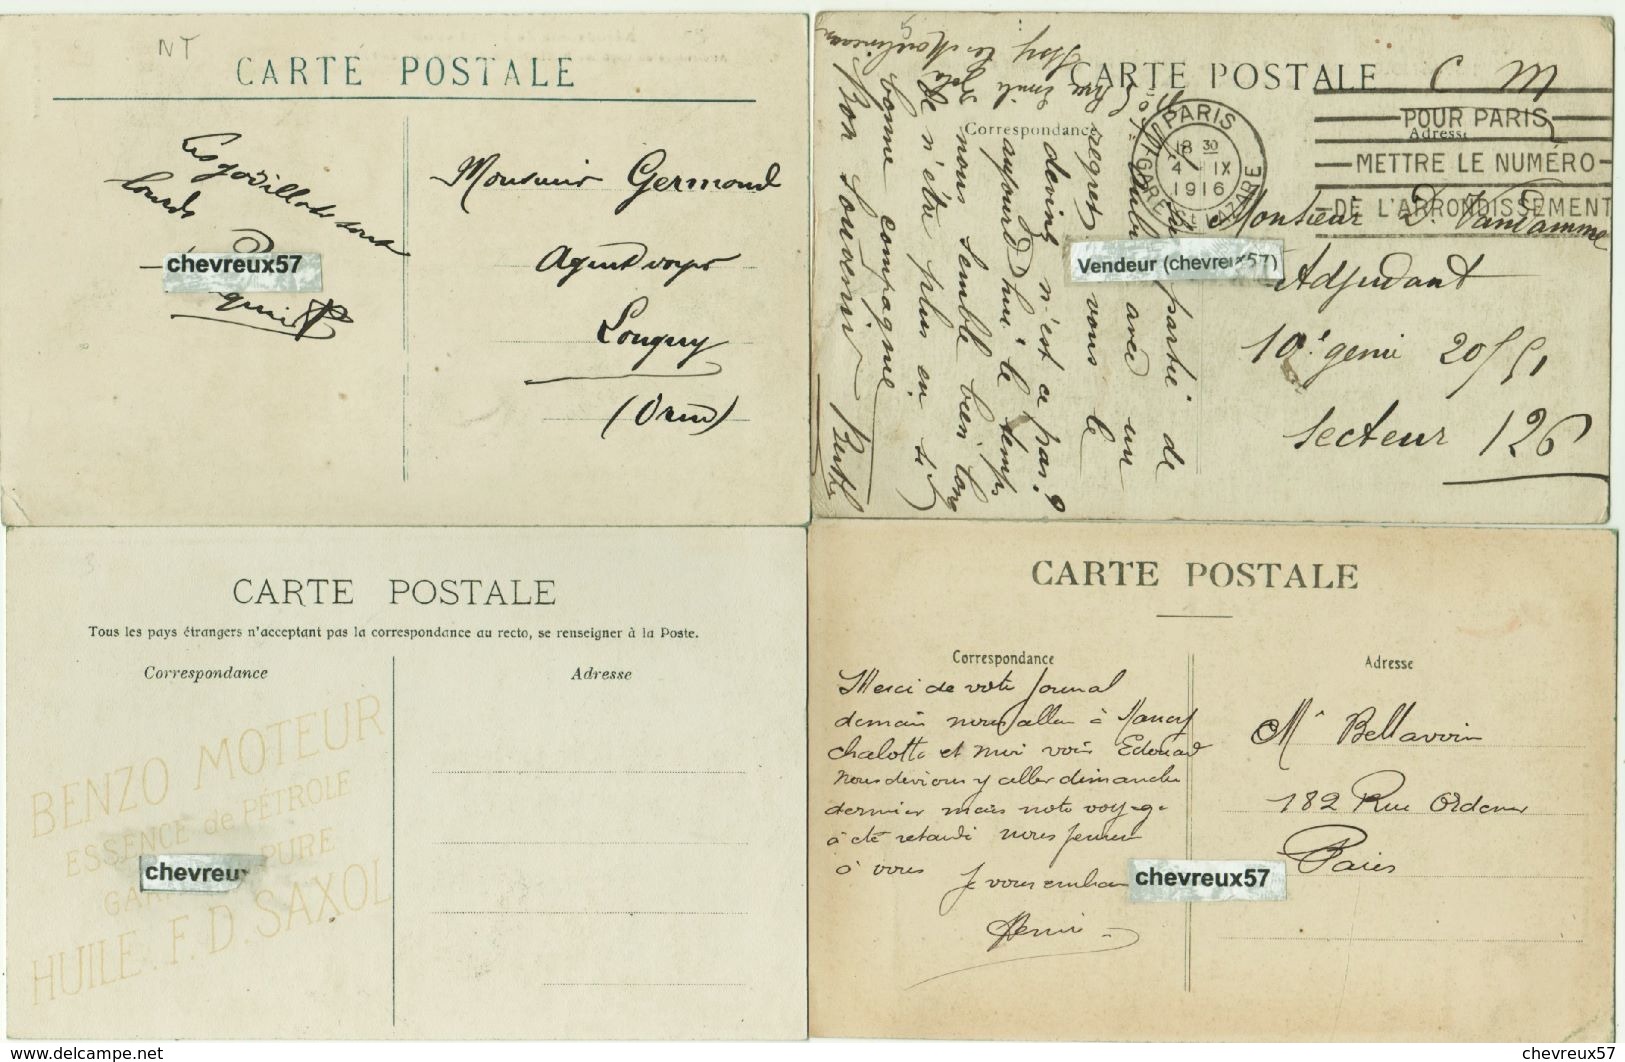 NT
CARTE POSTALE
Les godillots sont
lourds
chevreux57
Monsieur Germond
Agent voyer
Longny
(Orne)
CARTE POSTALE
C M
Correspondance
Adresse
PARIS
18 30
4 IX
1916
GARE St LAZARE
POUR PARIS
METTRE LE NUMÉRO
DE L'ARRONDISSEMENT
Monsieur D. Vandamme
Adjudant
10e génie 20/51
Secteur 126
Vendeur (chevreux57)
partie de
avec un
regret vous le
devinez n'est ce pas?
aujourd'hui le temps
nous semble bien long
de n'être plus en si
bonne compagnie
Bon souvenir Berthe
rue Emile Zola
Issy les Moulineaux
CARTE POSTALE
Tous les pays étrangers n'acceptant pas la correspondance au recto, se renseigner à la Poste.
Correspondance
Adresse
BENZO MOTEUR
ESSENCE de PÉTROLE
PURE
HUILE. F. D. SAXOL
chevreux
CARTE POSTALE
Correspondance
Adresse
Merci de votre Journal
demain nous allon à Nancy
chalotte et moi voir Edouard
nous devions y aller dimanche
dernier mais note voyage
à été retardé nous pensons
à vous
Je vous embra
Henri
Mr Bellavoin
182 Rue Ordener
Paris
chevreux57
www.delcampe.net
chevreux57